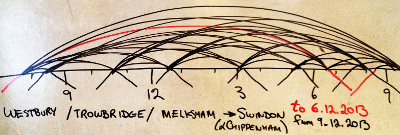 9 12 3 6 9
WESTBURY / TROWBRIDGE / MELKSHAM → SWINDON to 6.12.2013
(& CHIPPENHAM) from 9.12.2013